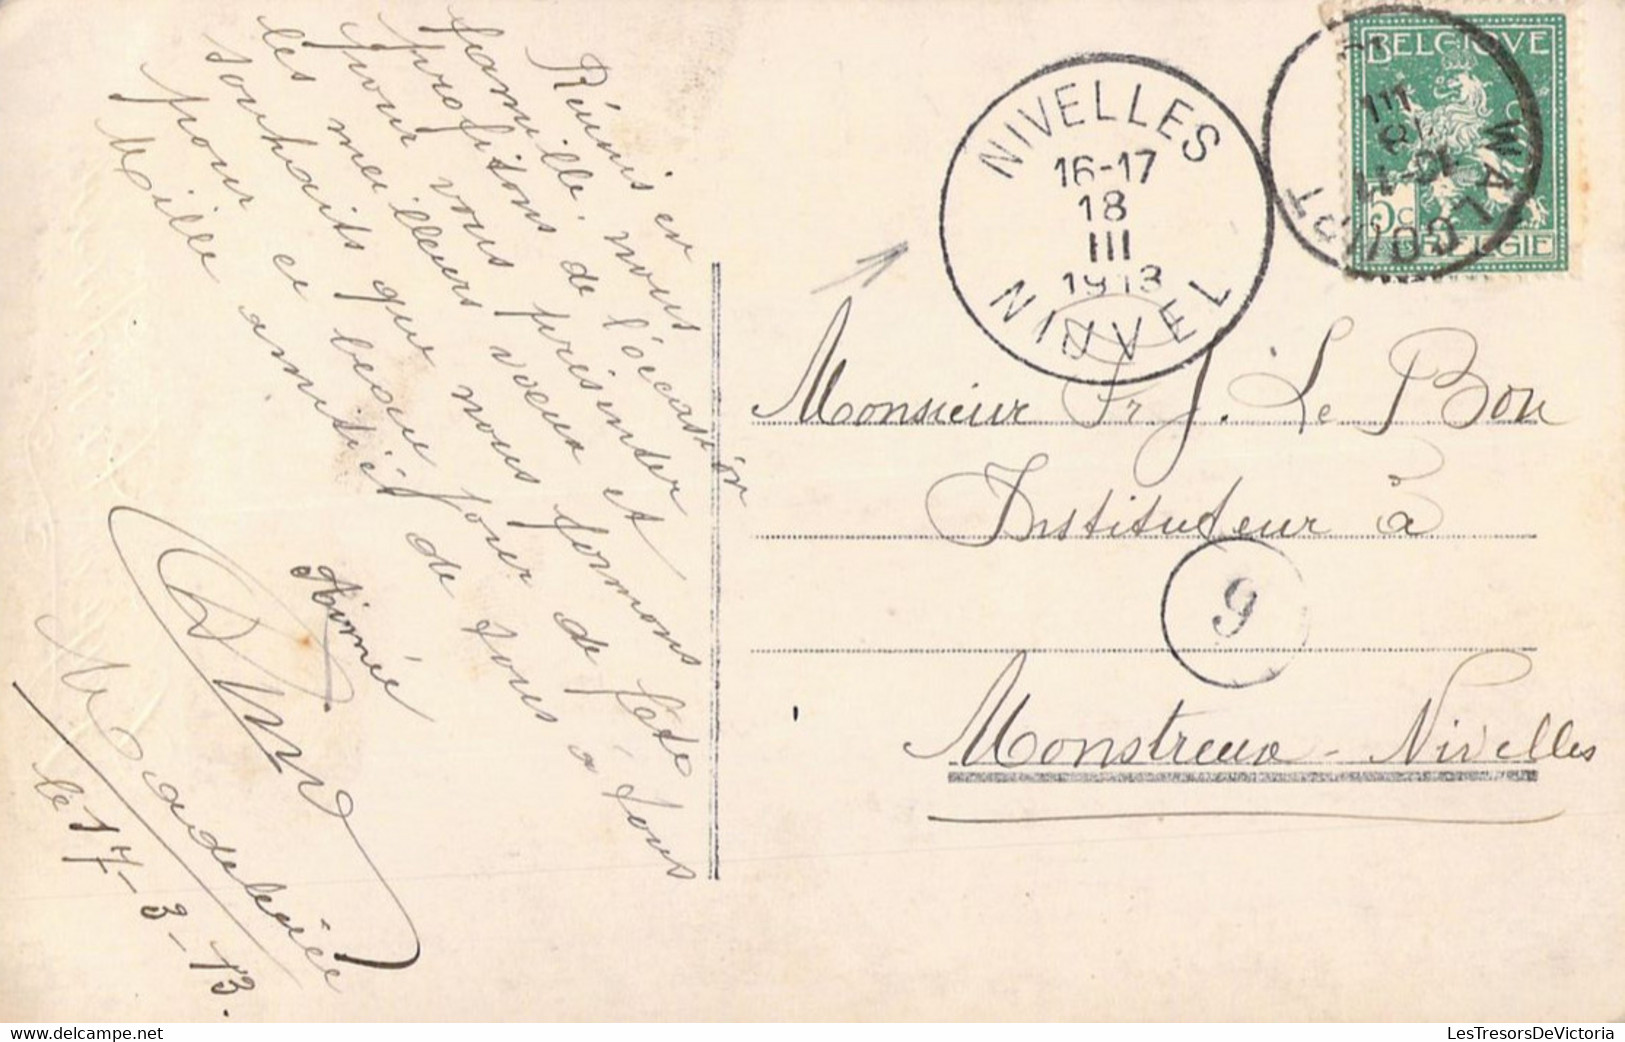 Réunis en
famille, nous
profitons de l'occasion
pour vous présenter
les meilleurs voeux et
souhaits que nous formons
pour ce beau jour de fête
Mille amitiés de tous à tous
Aimé
Madeleine
le 17-3-13.
NIVELLES
16-17
18
III
1913
NIJVEL
BELGIQUE
5c
BELGIE
WALCOURT
18
III
Monsieur Fr J. Le Bon
Instituteur à
9
Monstreux - Nivelles
LesTresorsDeVictoria